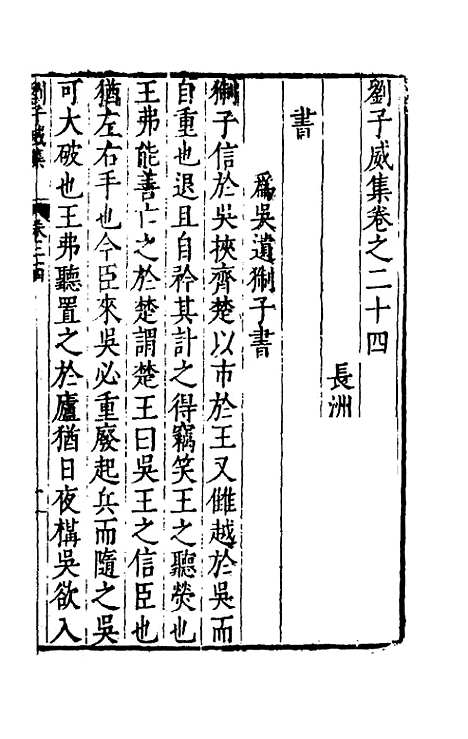 劉子威集卷之二十四
長洲
書
爲吳遺猘子書
猘子信於吳挾齊楚以市於王又讎越於吳而
自重也退且自矜其計之得竊笑王之聽熒也
王弗能善亡之於楚謂楚王曰吳王之信臣也
猶左右手也今臣來吳必重廢起兵而隨之吳
可大破也王弗聽置之於廬猶日夜構吳欲入
劉子威集 卷二十四 一